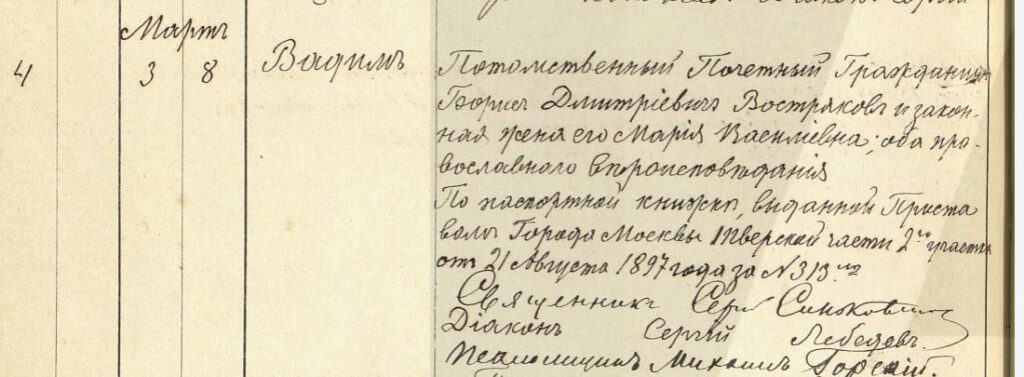 Мартъ
4 3 8 Вадимъ
Потомственный Почетный Гражданинъ
Борисъ Дмитріевичъ Востряковъ и закон-
ная жена его Марія Василіевна; оба пра-
вославнаго вѣроисповѣданія
По паспортной книжкѣ, выданной Приста
вомъ Города Москвы Тверской части 2го участка
отъ 21 Августа 1897 года за № 313мъ
Священникъ Сергій
Діаконъ Сергій Лебедевъ.
Псаломщикъ Михаилъ Горскій.